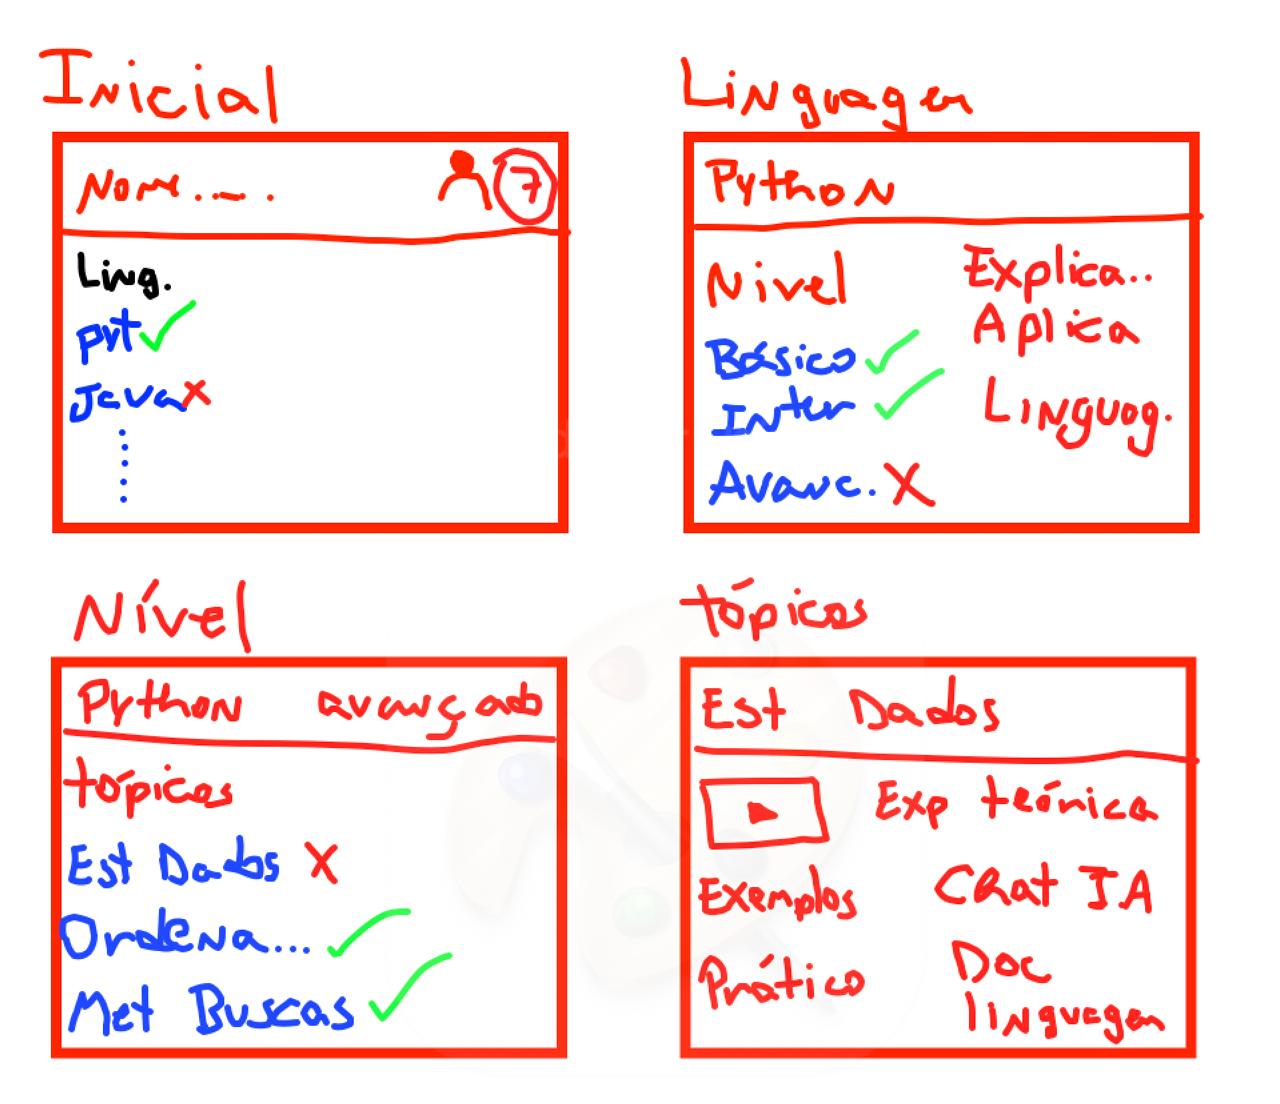 Inicial
Nome..-- .
7
Ling.
pyt
Java
Linguagem
Python
Nivel
Básico
Inter
Avanc.
Explica..
Aplica
Linguag.
Nível
Python avançado
tópicos
Est Dados
Ordena...
Met Buscas
tópicos
Est Dados
Exp teórica
Exemplos
Chat IA
Prático
Doc
linguagem